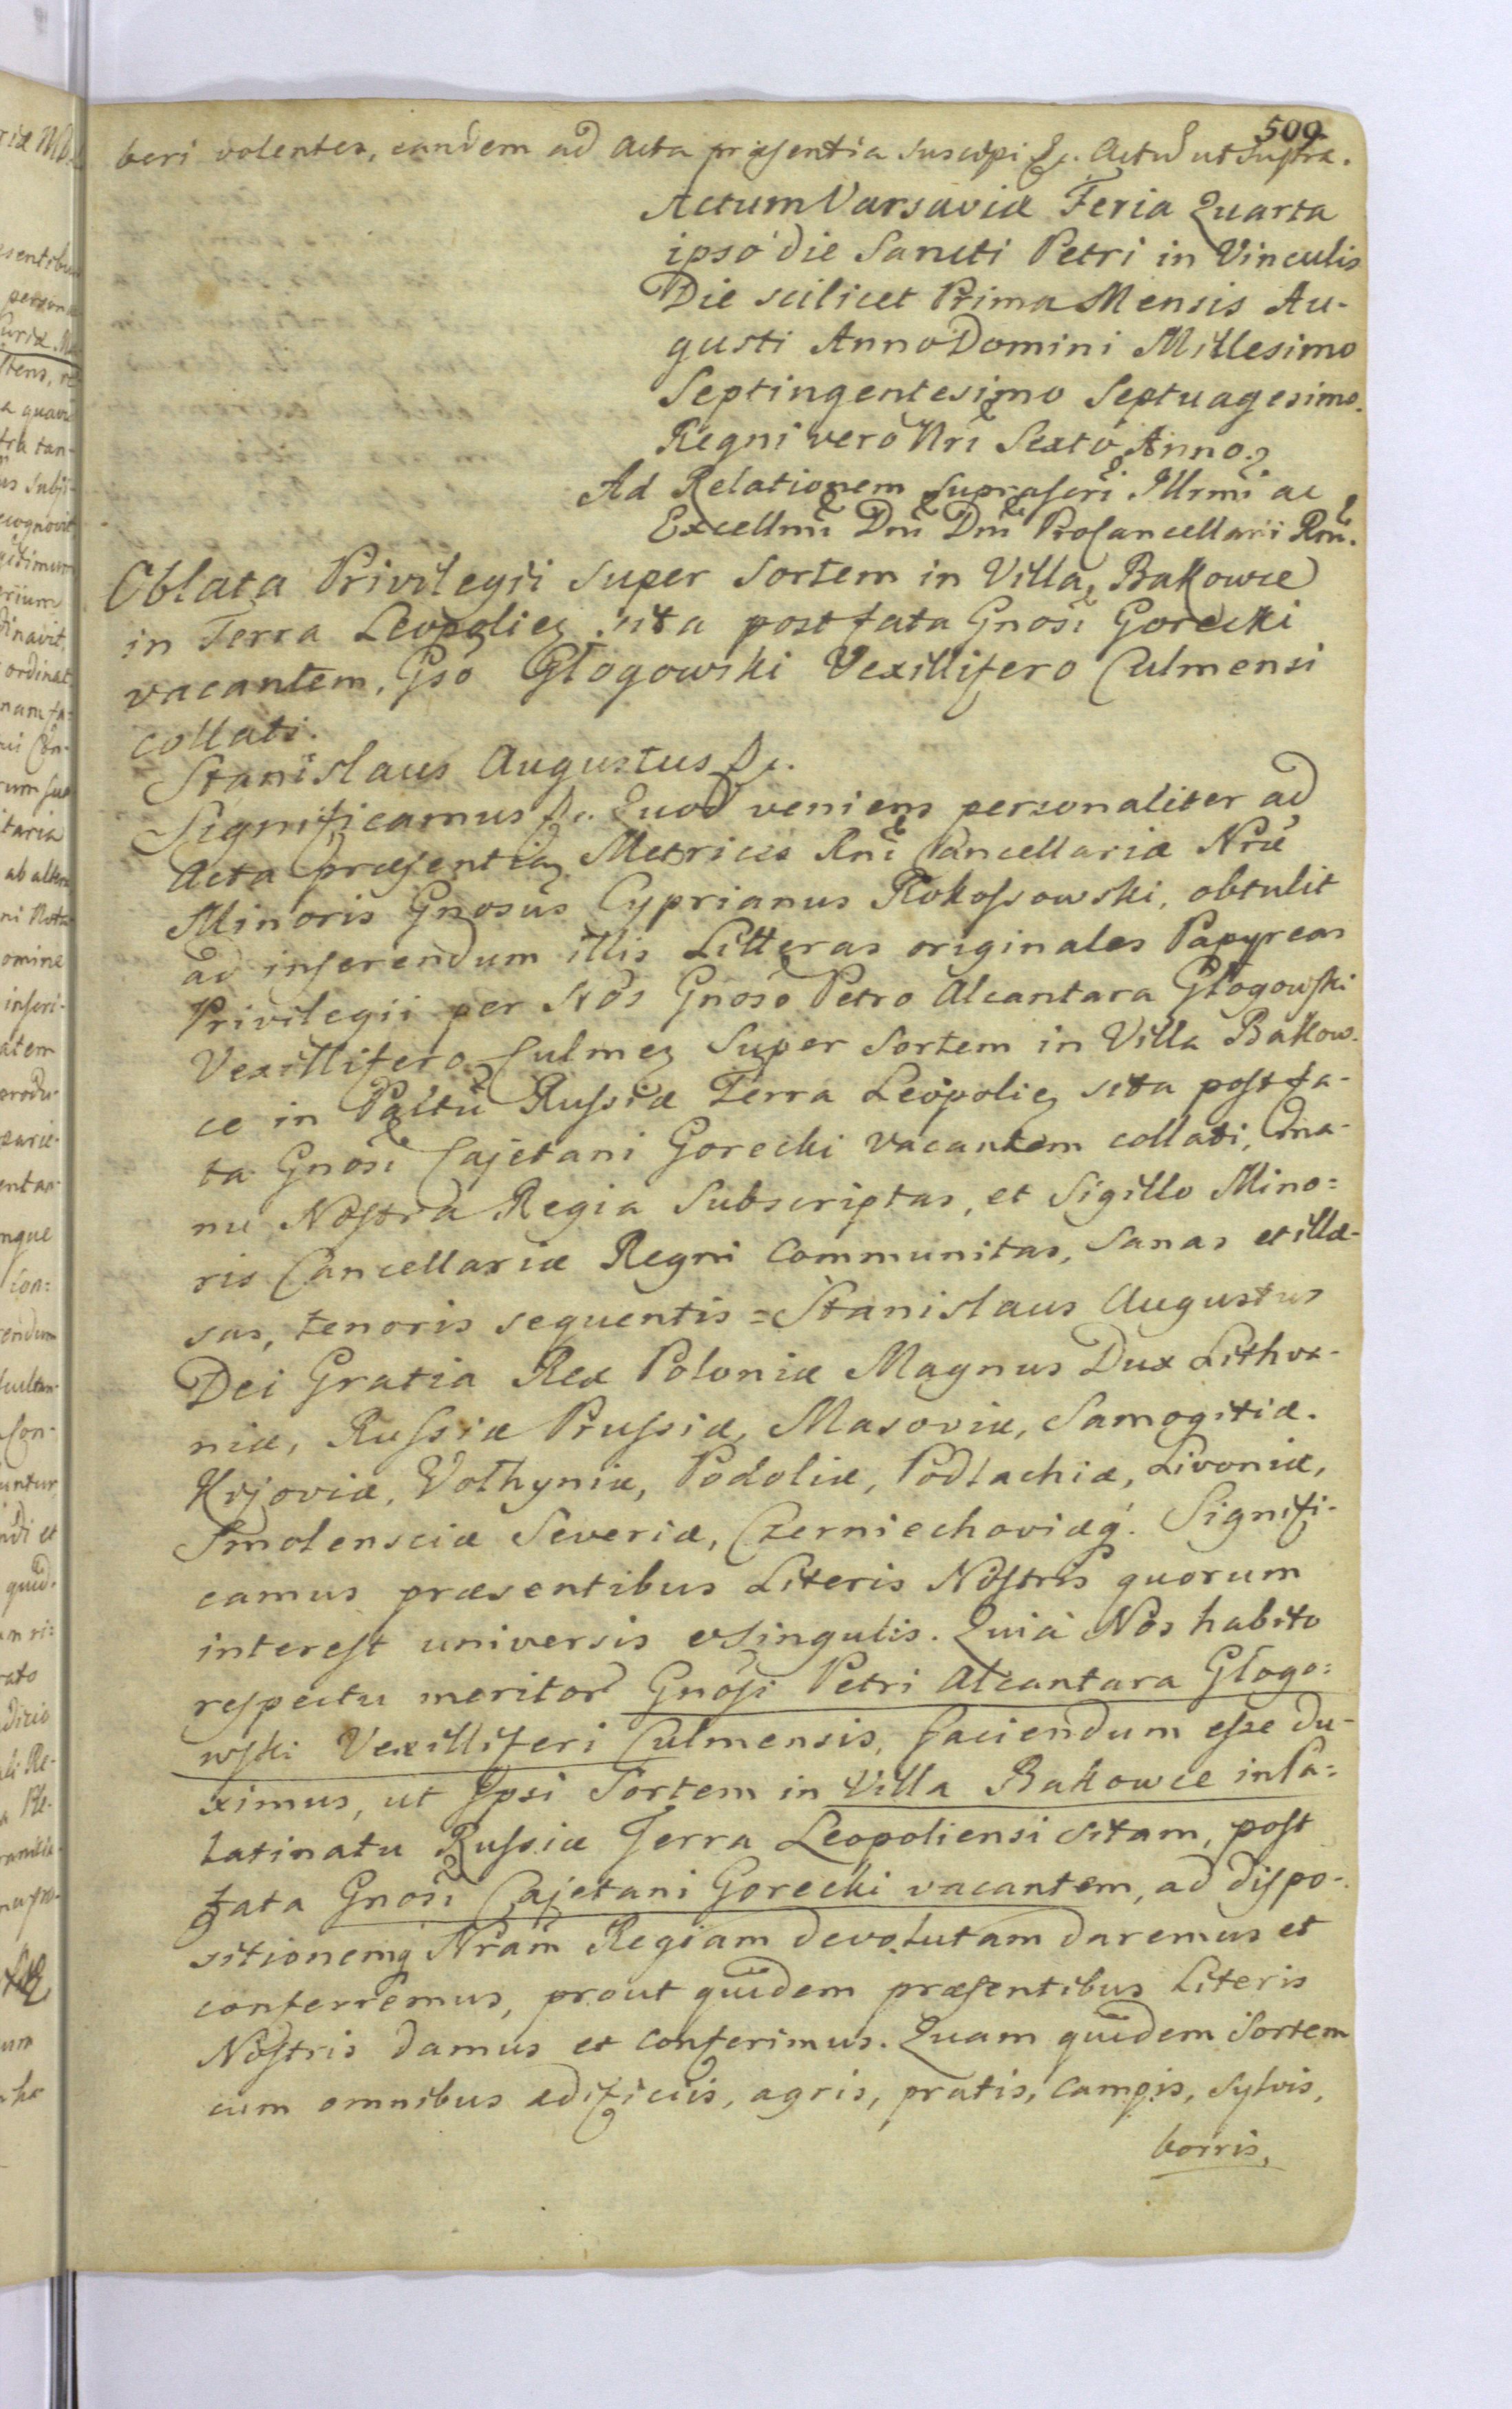 509.
beri volentes, eandem ad Acta præsentia suscipi &c. Actũ ut Supra.
Actum Varsaviæ Feria Quarta
ipso die Sancti Petri in Vinculis
Die scilicet Prima Mensis Au-
gusti Anno Domini Millesimo
Septingentesimo Septuagesimo.
Regni vero Nri Sexto Anno.
Ad Relationem Suprascri Illrmi ac
Excellmi Dni Dni ProCancellarii Rni.
Oblata Privilegii super Sortem in Villa Bakowce
in Terra Leopolien sita post fata Gnosi Gorecki
vacantem, Gso Głogowski Vexillifero Culmensi
collati.
Stanislaus Augustus &c.
Significamus &c. Quod veniens personaliter ad
Acta præsentia Metrices Rni Cancellariæ Nræ
Minoris Gnosus Cyprianus Rokossowski, obtulit
ad inserendum illis Litteras originales Papyreas
Privilegii per Nos Gnoso Petro Alcantara Głogowski
Vexillifero Culmen Super Sortem in Villa Bakow-
ce in Paltu Russiæ Terra Leopolien sita post fa-
ta Gnosi Cajetani Gorecki vacantem collati, ma-
nu Nostra Regia Subscriptas, et Sigillo Mino=
ris Cancellariæ Regni Communitas, Sanas et illæ-
sas, tenoris sequentis = Stanislaus Augustus
Dei Gratia Rex Poloniæ Magnus Dux Lithva-
niæ, Russiæ Prussiæ, Masoviæ, Samogitiæ.
Kijoviæ, Volhyniæ, Podoliæ, Podlachiæ, Livoniæ,
Smolensciæ Severiæ, Czerniechoviæq. Signifi-
camus præsentibus Literis Nostris quorum
interest universis et singulis. Quia Nos habito
respectu meritor Gnosi Petri Alcantara Głogo=
wski Vexilliferi Culmensis, faciendum esse du-
ximus, ut Ipsi Sortem in Villa Bakowce in Pa=
latinatu Russiæ Terra Leopoliensi sitam, post
fata Gnosi Cajetani Gorecki vacantem, ad dispo-
sitionemq Nram Regiam devolutam daremus et
conferremus, prout quidem præsentibus Literis
Nostris damus et conferimus. Quam quidem Sortem
cum omnibus ædificiis, agris, pratis, campis, sylvis,
borris,